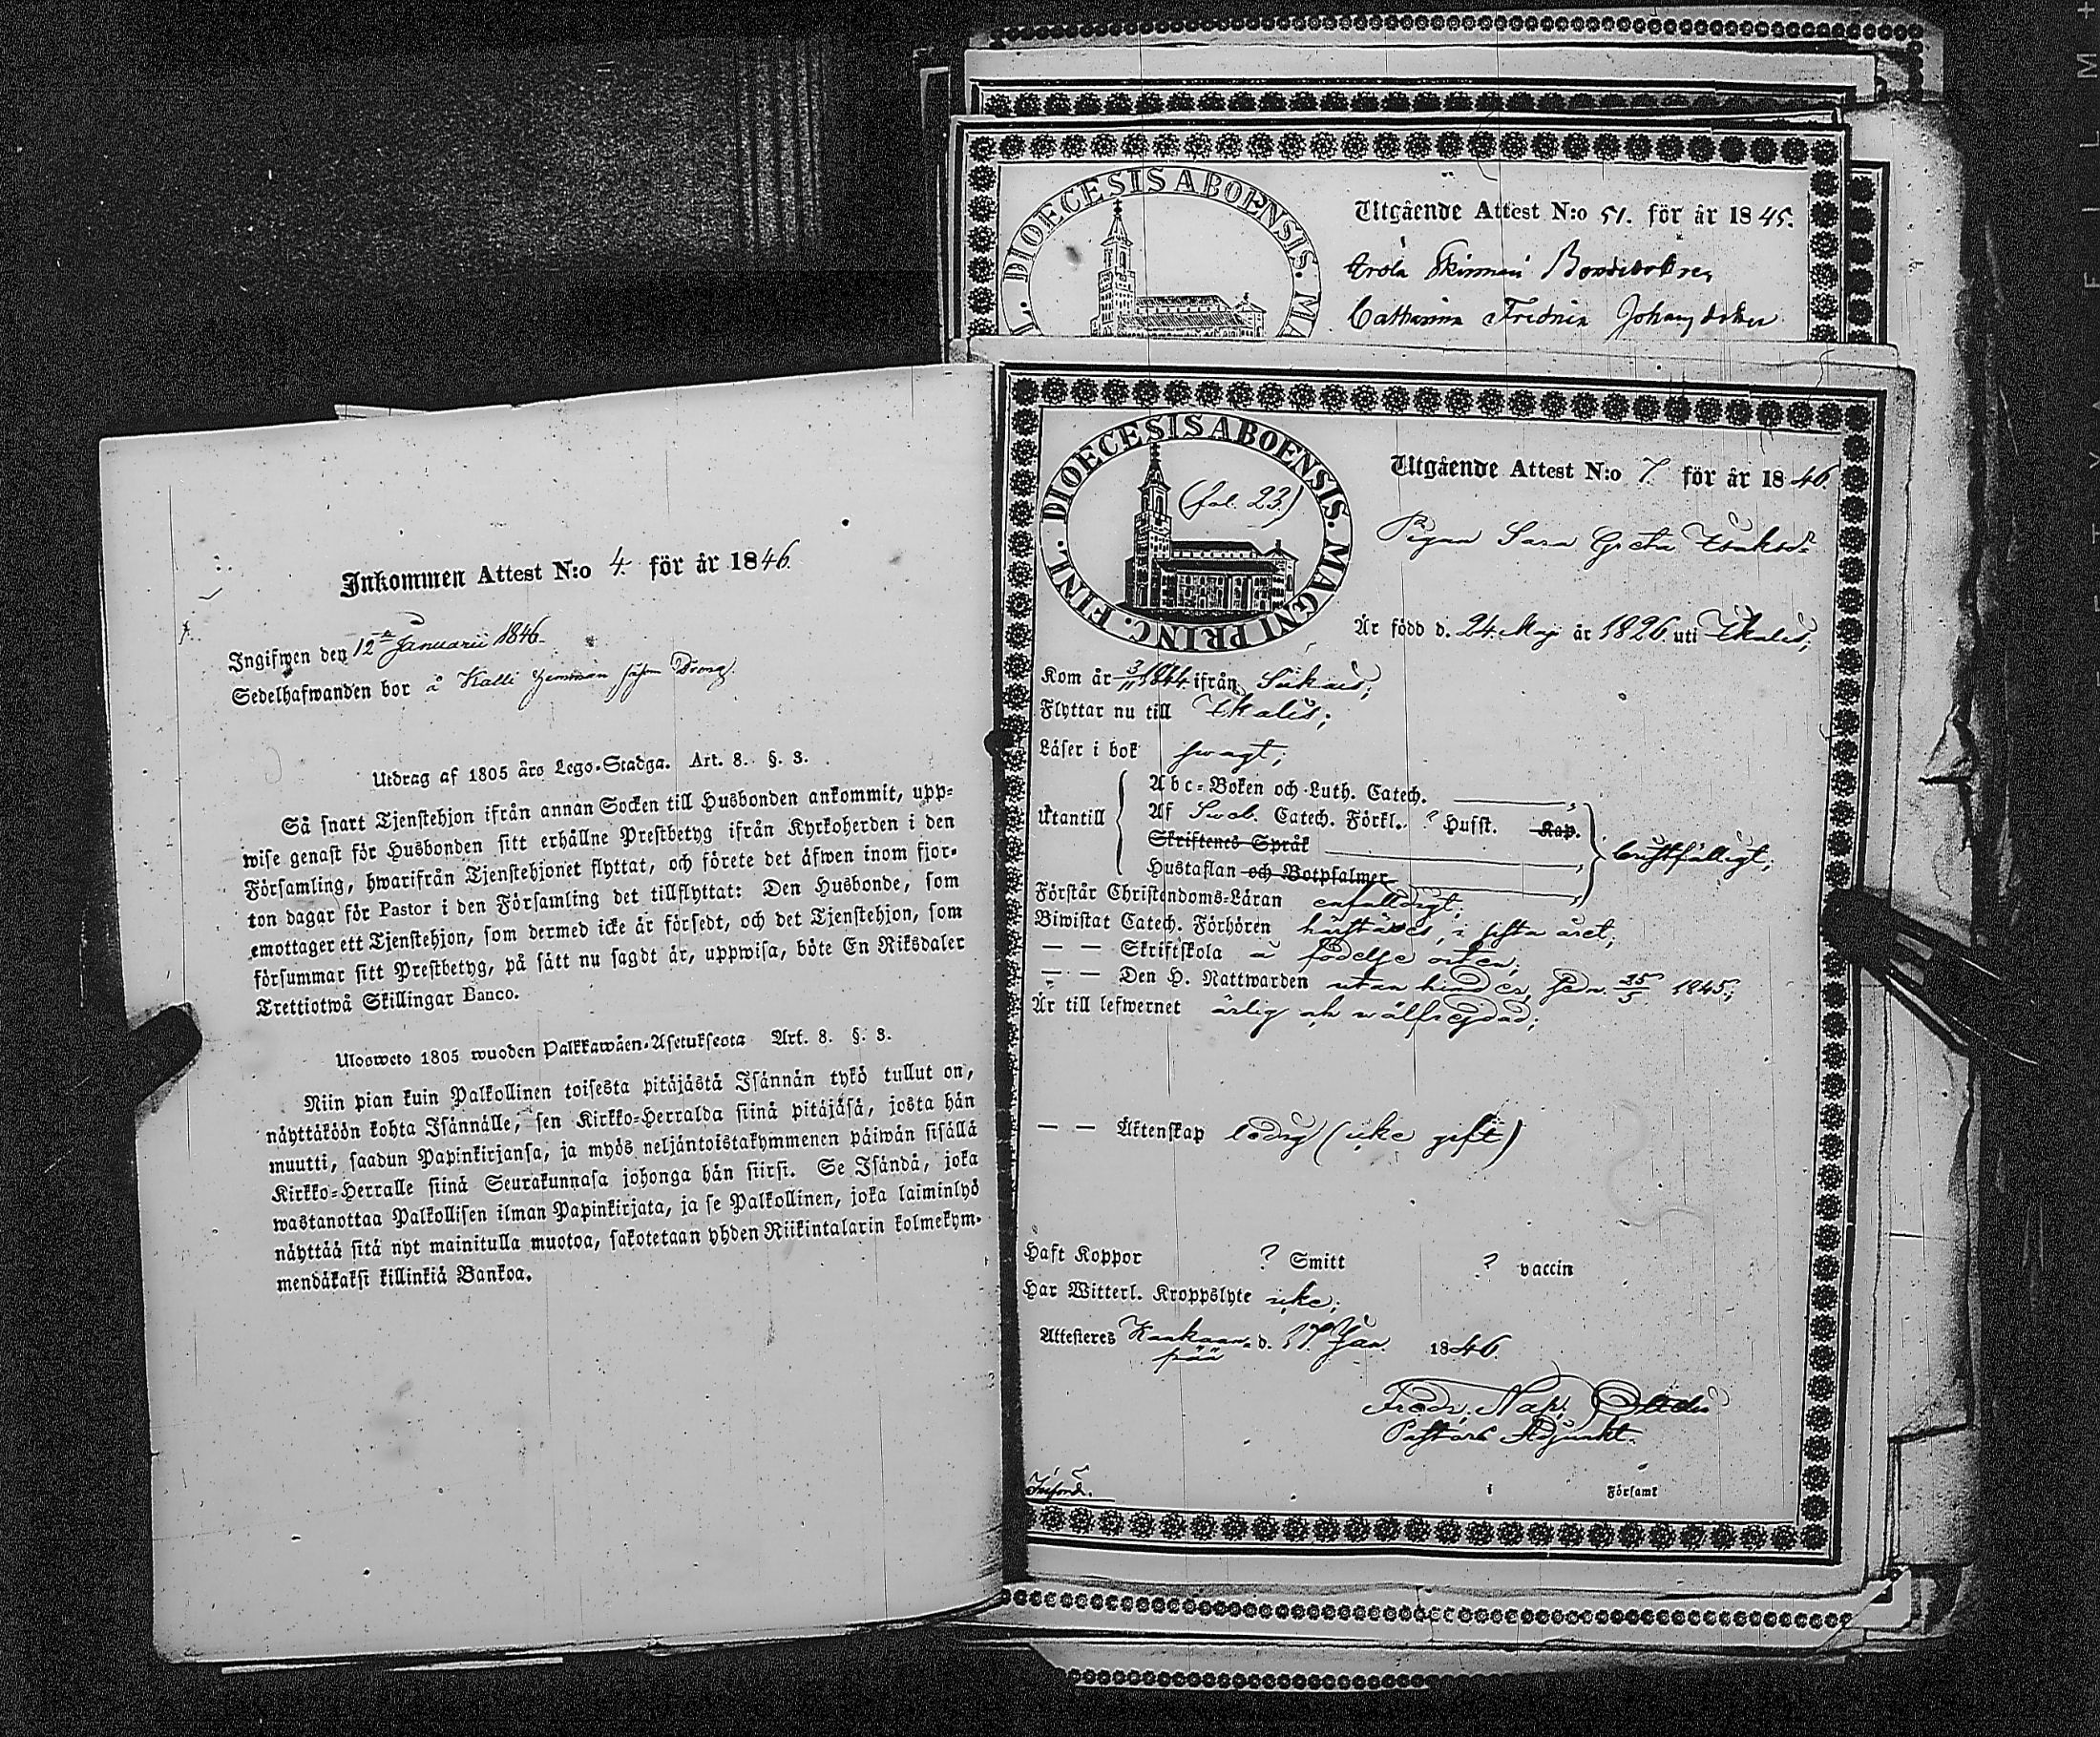 Inkommen Attest N:o 4. för år 1846.
Ingifwen den 12te Januarii 1846.
Sedelhafwanden bor å Kalli hemman såsom Dräng.
Utdrag af 1805 års Lego-Stadga. Art. 8. §. 3.
Så snart Tjenstehjon ifrån annan Socken till Husbonden ankommit, upp-
wise genast för Husbonden sitt erhållne Prestbetyg ifrån Kyrkoherden i den
Församling, hwarifrån Tjenstehjonet flyttat, och förete det äfwen inom fjor-
ton dagar för Pastor i den Församling det tillflyttat: Den Husbonde, som
emottager ett Tjenstehjon, som dermed icke är försedt, och det Tjenstehjon, som
försummar sitt Prestbetyg, på sätt nu sagdt är, uppwisa, böte En Riksdaler
Trettiotwå Skillingar Banco.
Ulosweto 1805 wuoden Palkkawäen-Asetuksesta Art. 8. §. 3.
Niin pian kuin Palkollinen toisesta pitäjästä Isännän tykö tullut on,
näyttäköön kohta Isännälle, sen Kirkko-Herralda siinä pitäjäsä, josta hän
muutti, saadun Papinkirjansa, ja myös neljäntoistakymmenen päiwän sisällä
Kirkko-Herralle siinä Seurakunnasa johonga hän siirsi. Se Isändä, joka
wastanottaa Palkollisen ilman Papinkirjata, ja se Palkollinen, joka laiminlyö
näyttää sitä nyt mainitulla muotoa, sakotetaan yhden Riikintalarin kolmekym-
mendäkaksi killinkiä Bankoa.
DIOECESIS ABOENSIS. MA
Utgående Attest N:o 51. för år 1845.
Catharina Fredrica Johansdotter
DIOECESIS ABOENSIS. MAGNI PRINC. FINL.
(fol. 23.)
Utgående Attest N:o 7. för år 1846.
Pigan Sara Greta
Är född d. 24. Maji år 1826 uti Ikalis;
Kom år 3/11 1844 ifrån
Flyttar nu till Ikalis;
Läser i bok swagt;
Utantill
Abc-Boken och Luth. Catech.
Af Sweb. Catech. Förkl. ? Husst. Kap.
Skriftenes Språk
Hustaflan och Botpsalmer
bristfälligt;
Förstår Christendoms-Läran enfaldigt;
Biwistat Catech. Förhören härstädes, i sista året;
— — Skriftskola å födelse orten;
— — Den H. Nattwarden utan hinder, sedn. 25/5 1845;
Är till lefwernet ärlig och wälfrejdad;
— — Äktenskap ledig (icke gift)
Haft Koppor ? Smitt ? vaccin
Har Witterl. Kroppslyte icke;
Attesteres Kankaan- d. 17 Jan. 1846.
pää
Fredr. Nap.
Pastors Adjunkt.
Införd.
i Församl